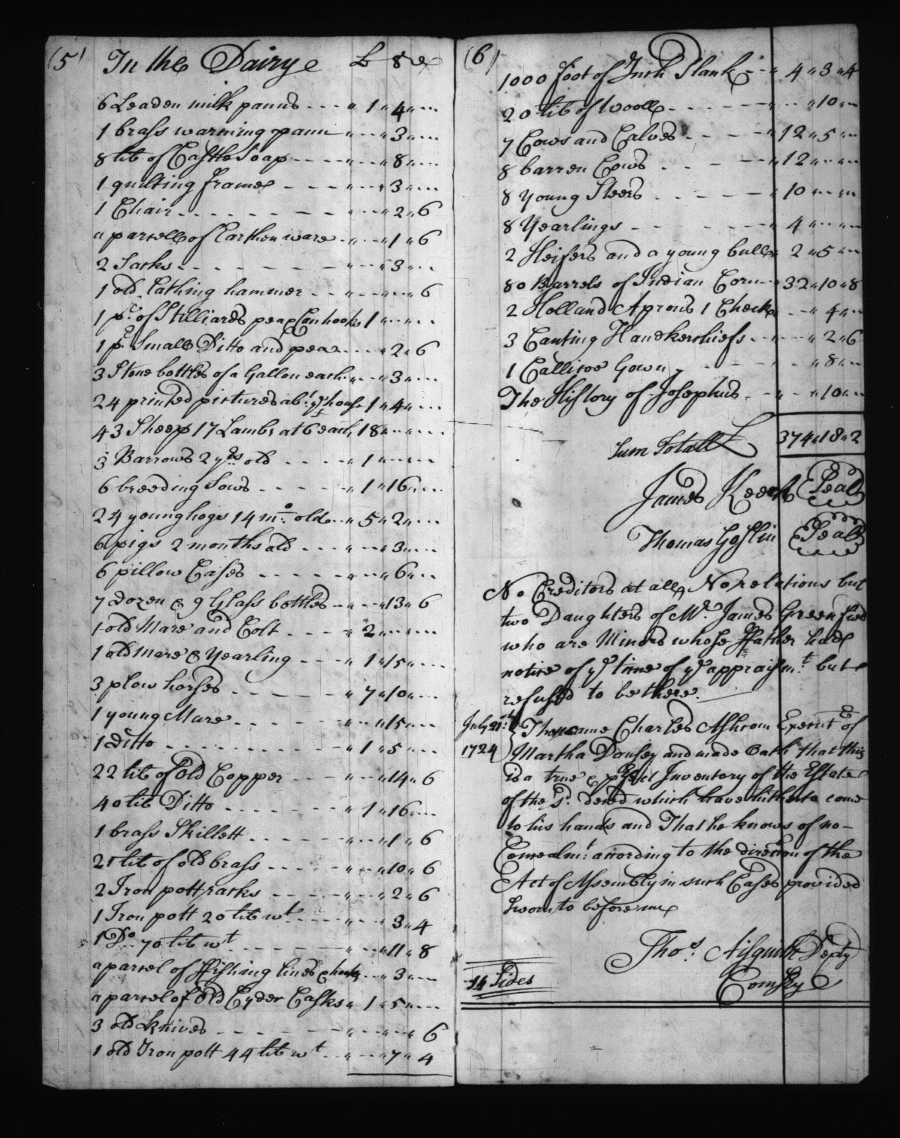 (5) In the Dairy £ s d
6 Leaden milk panns - - - " 1 " 4 " --
1 brass warming pann - - " -- " 3 " --
8 lib of Castle Soap - - - " -- " 8 " --
1 quilting frame - - - " -- " 3 " --
1 Chair - - - " -- " 2 " 6
a parcell of Earthen ware - - " -- " 1 " 6
2 Sacks - - - " -- " 3 " --
1 old Lathing hammer - - - " -- " -- " 6
1 pr. of Stilliards pea & Canhooks 1 " -- " --
1 pr Small Ditto and pea - - " -- " 2 " 6
3 Stone bottles of a Gallon each - " -- " 3 " --
24 printed pictures abt. ye house " 1 " 4 " --
43 Sheep 17 Lambs at 6 each 18 " -- " --
3 Barrows 2 yrs old - - " 1 " -- " --
6 breeding Sows - - - " 1 " 16 " --
24 young hogs 14 mo. old - " 5 " 2 " --
6 pigs 2 months old - - " -- " 3 " --
6 pillow Cases - - - " -- " 6 " --
7 dozen & 9 Glass bottles - - " -- " 13 " 6
1 old Mare and Colt - - " 2 " -- " --
1 old mare & Yearling - - " 1 " 15 " --
3 plow horses - - - " 7 " 10 " --
1 young Mare - - - " -- " 15 " --
1 ditto - - - " 1 " 5 " --
22 lib of old Copper - - " -- " 14 " 6
40 lib Ditto - - - " 1 " 16 " --
1 brass Skillett - - - " -- " 1 " 6
21 lib of old brass - - - " -- " 10 " 6
2 Iron pott racks - - - " -- " 2 " 6
1 Iron pott 20 lib wt " -- " 3 " 4
1 Do. 70 lib wt " -- " 11 " 8
a parcel of ffishing lines & hooks " -- " 3 " --
a parcel of old Cyder Casks " 1 " 5 " --
3 old knives - - - " -- " -- " 6
1 old Iron pott 44 lib wt - " -- " 7 " 4
(6)
1000 foot of Inch Plank - " 4 " 3 " 4
20 lib of wooll - - - " -- " 10 " --
7 Cows and Calves - - - " 12 " 5 " --
8 barren Cows - - - " 12 " -- " --
8 Young Steers - - - 10 " -- " --
8 Yearlings - - - 4 " -- " --
2 Heifers and a young bull " 2 " 5 " --
80 Barrels of Indian Corn - 32 " 10 " 8
2 Holland Aprons 1 Check " -- " 4 " --
3 Handkerchiefs - - " -- " 2 " 6
1 Callicoe Gown - - - " -- " 8 " --
The History of Josephus - - " -- " 10 " --
Sum Totall £ 374 " 18 " 2
James Keech Seal
Thomas Goslin Seal
No Creditors at all, No relations but
two Daughters of Mr. James Greenfield
who are Minors whose ffather had
notice of ye time of ye appraismt. but
refused to be there.
July 21st Then came Charles Ashcom Execut of
1724 Martha Dansey and made Oath that this
is a true & pfect Inventory of the Estate
of the sd. decd which have hitherto come
to his hands and That he knows of no
Concealmt. according to the direction of the
Act of Assembly in such Cases provided
Sworn to before me
Thos. Aisquith Depty
Comsry
14 Sides